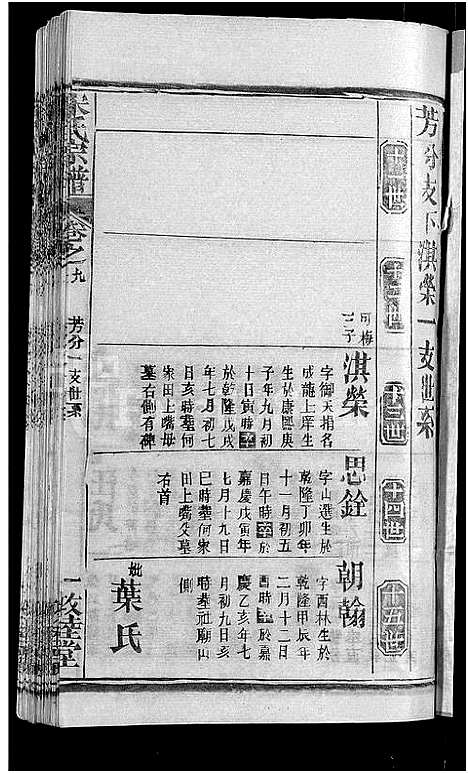 芳分支下淇榮一支世系
十一世
十二世
十三世
十四世
十五世
可梅
三子
淇榮
字御天捐名
成龍上庠生
生於康熙庚
子年九月初
十日寅時卒
於乾隆戊戌
年七月初七
亥時葬何
家田上嘴母
墓右側有碑
思銓
字山選生於
乾隆丁卯年
十一月初五
日午時卒於
嘉慶戊寅年
七月十九日
巳時葬何家
田上嘴父墓
右首
朝翰
字西林生於
乾隆甲辰年
二月十二日
酉時卒於嘉
慶乙亥年七
月初九日亥
時葬社廟山
側
妣
葉氏
氏宗譜
卷之九
芳分一支世系
一 敦達堂